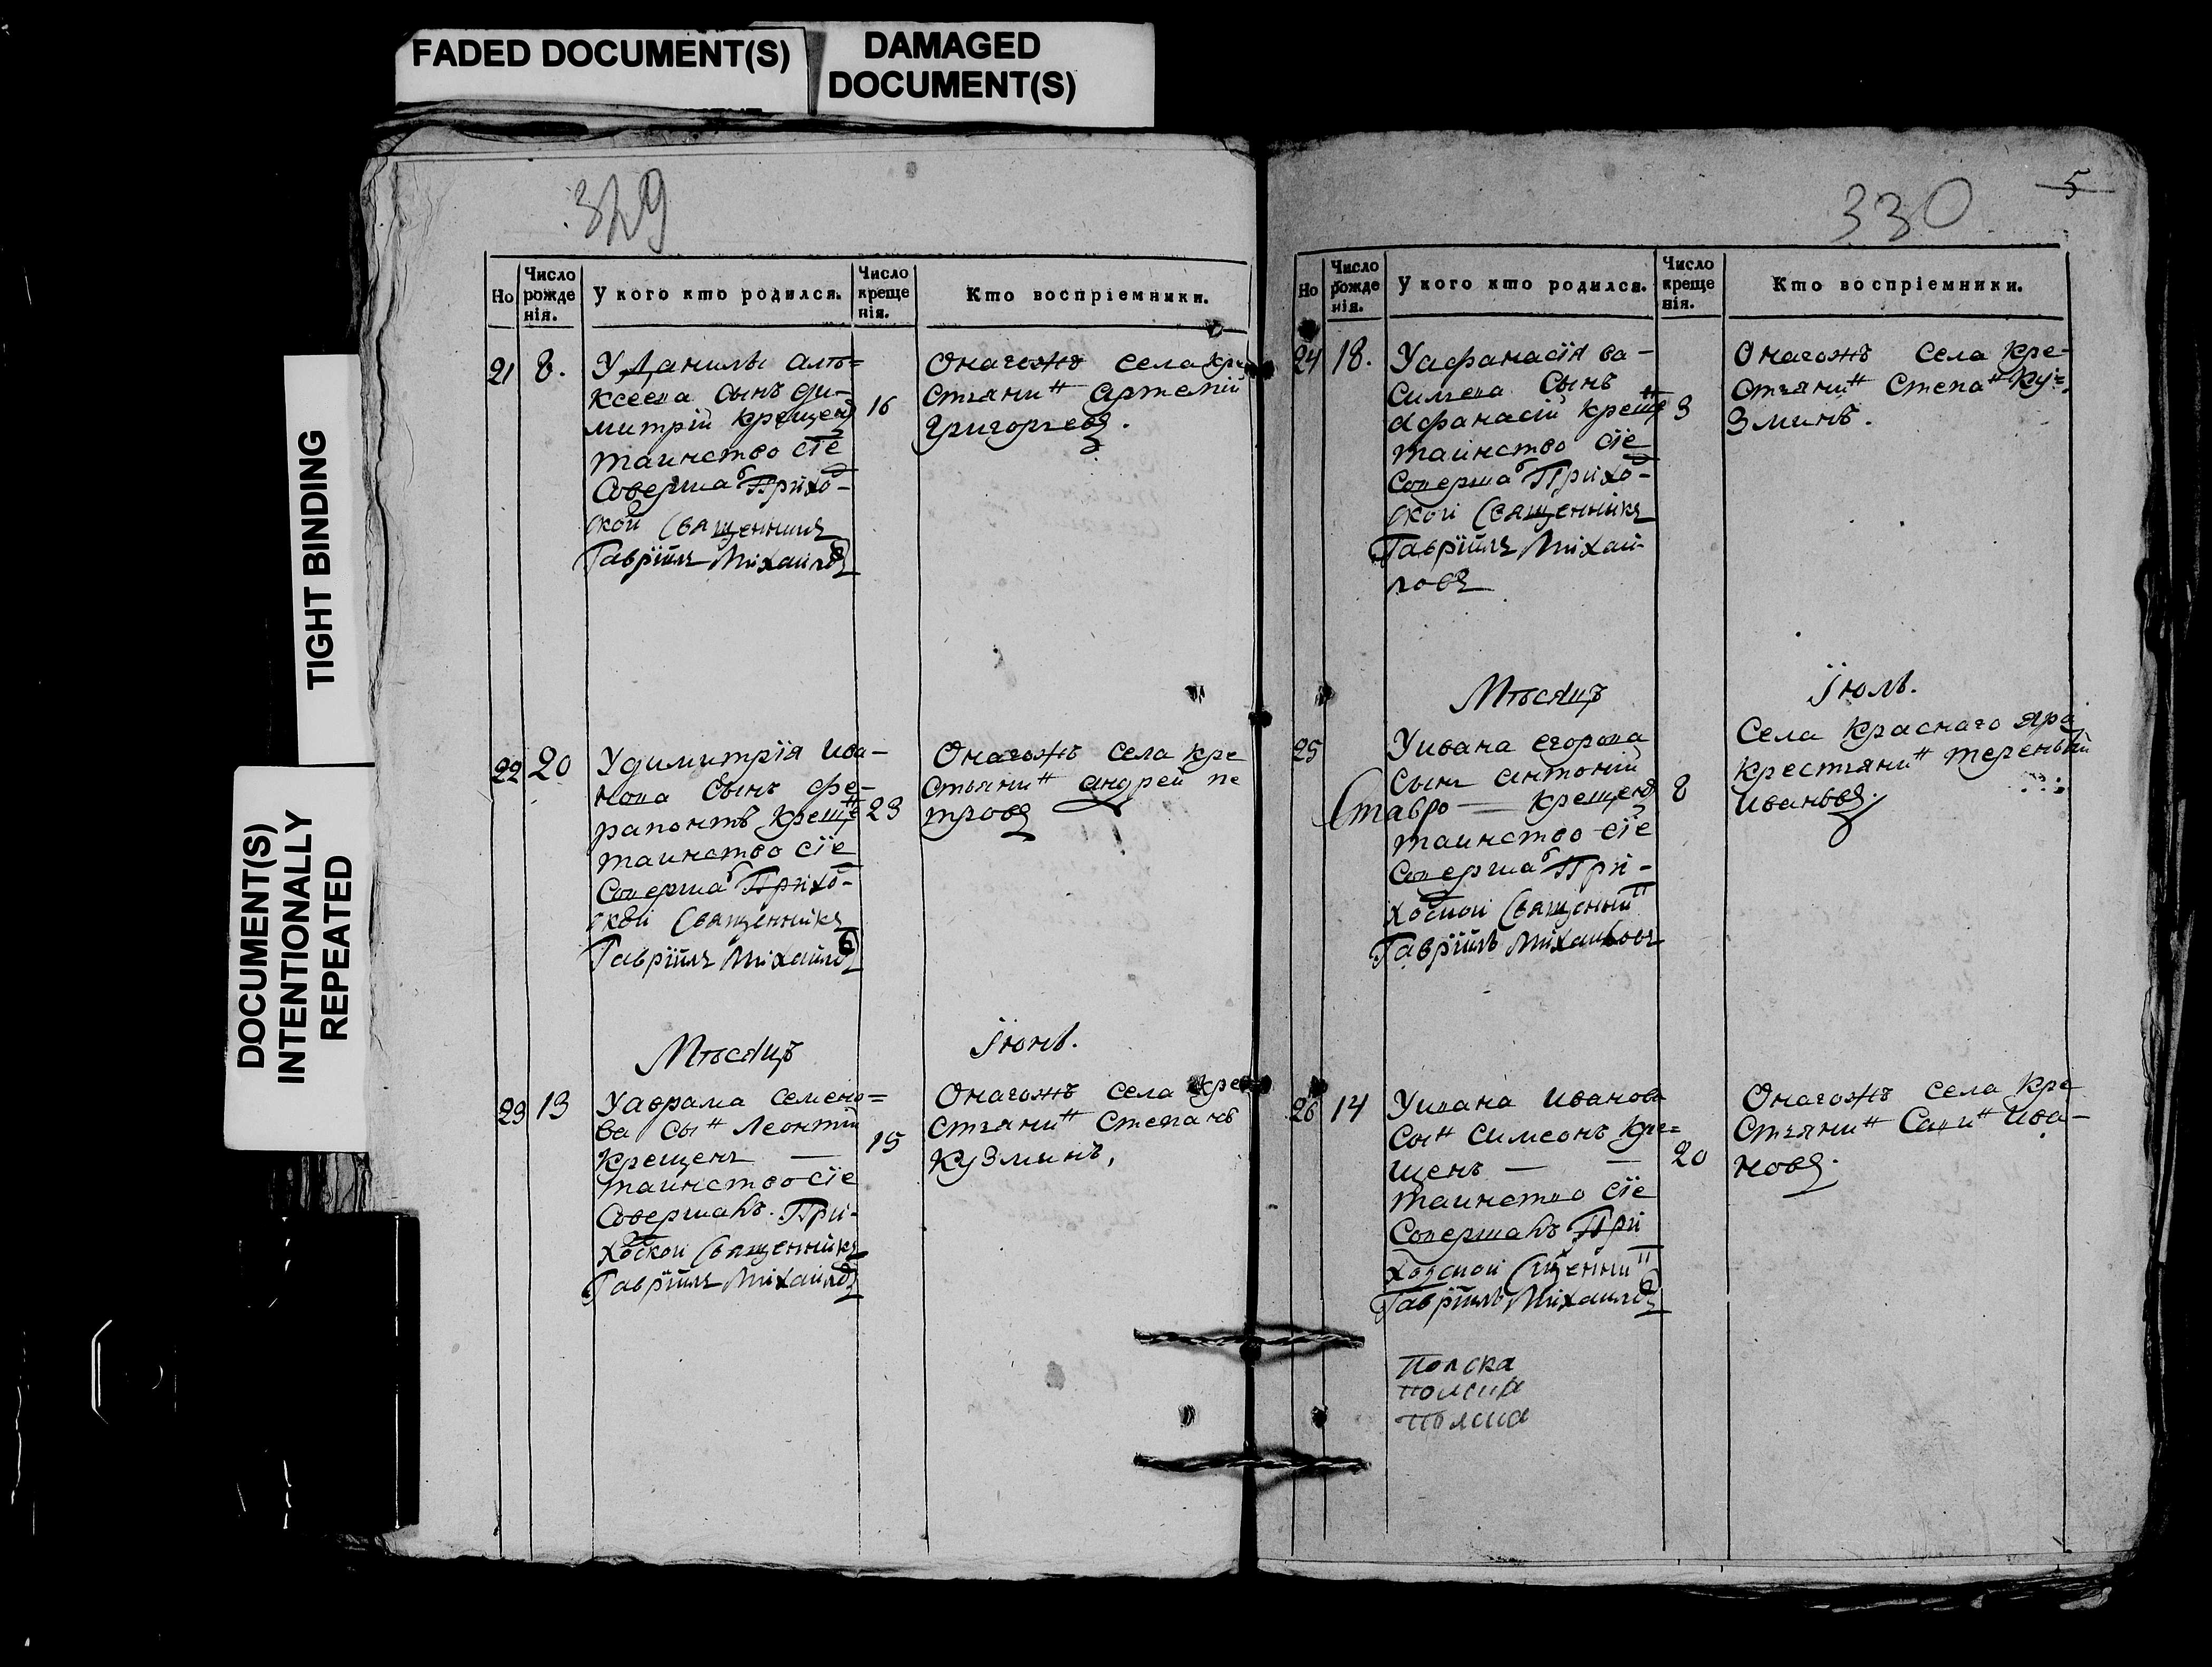 FADED DOCUMENT(S)
DAMAGED
DOCUMENT(S)
TIGHT BINDING
DOCUMENT(S)
INTENTIONALLY
REPEATED
329
Но
Число рожде нія.
У кого кто родился.
Число креще нія.
Кто воспріемники.
21 8.
У Данилы але=
ксеева сынъ ди-
митрій крещенъ 16
таинство сїе
Соверша Прихо-
ской Священникъ
Гаврїилъ Михаиловъ
Онагожъ села кре
стьянинъ Артемій
Григорьевъ.
22 20
У димитрїя ива-
нова сынъ фе-
рапонтъ крещенъ 23
таинство сїе
Соверша Прихо-
ской Священникъ
Гаврїилъ Михаиловъ
Онагожъ села кре
стьянинъ андрей пе
тровъ
Мѣсяцъ Їюнь.
23 13
У аврама семено=
ва сынъ Леонтій
крещенъ — 15
таинство сїе
Совершалъ При-
хоской Священникъ
Гаврїилъ Михаиловъ
Онагожъ села кре
стьянинъ Степанъ
кузминъ,
330
5
Но
Число рожде нія.
У кого кто родился.
Число креще нія.
Кто воспріемники.
24 18.
У афанасїя ва-
сильева сынъ
Афанасій крещенъ 3
таинство сїе
Соверша Прихо-
ской Священникъ
Гаврїилъ Михаи-
ловъ
Онагожъ села кре-
стьянинъ Степанъ Ку=
зминъ.
Мѣсяцъ Їюль.
25
У ивана егорова
сынъ антоній
крещенъ 8
таинство сїе
Соверша При-
хоской Священникъ
Гаврїилъ Михаиловъ
Села Краснаго яра
крестьянинъ терентій
ивановъ.
26 14
У ивана иванова
сынъ Симеонъ кре=
щенъ — — 20
таинство сїе
Совершалъ При
ходской Священникъ
Гаврїилъ Михаиловъ
Онагожъ села кре
стьянинъ ива-
новъ.